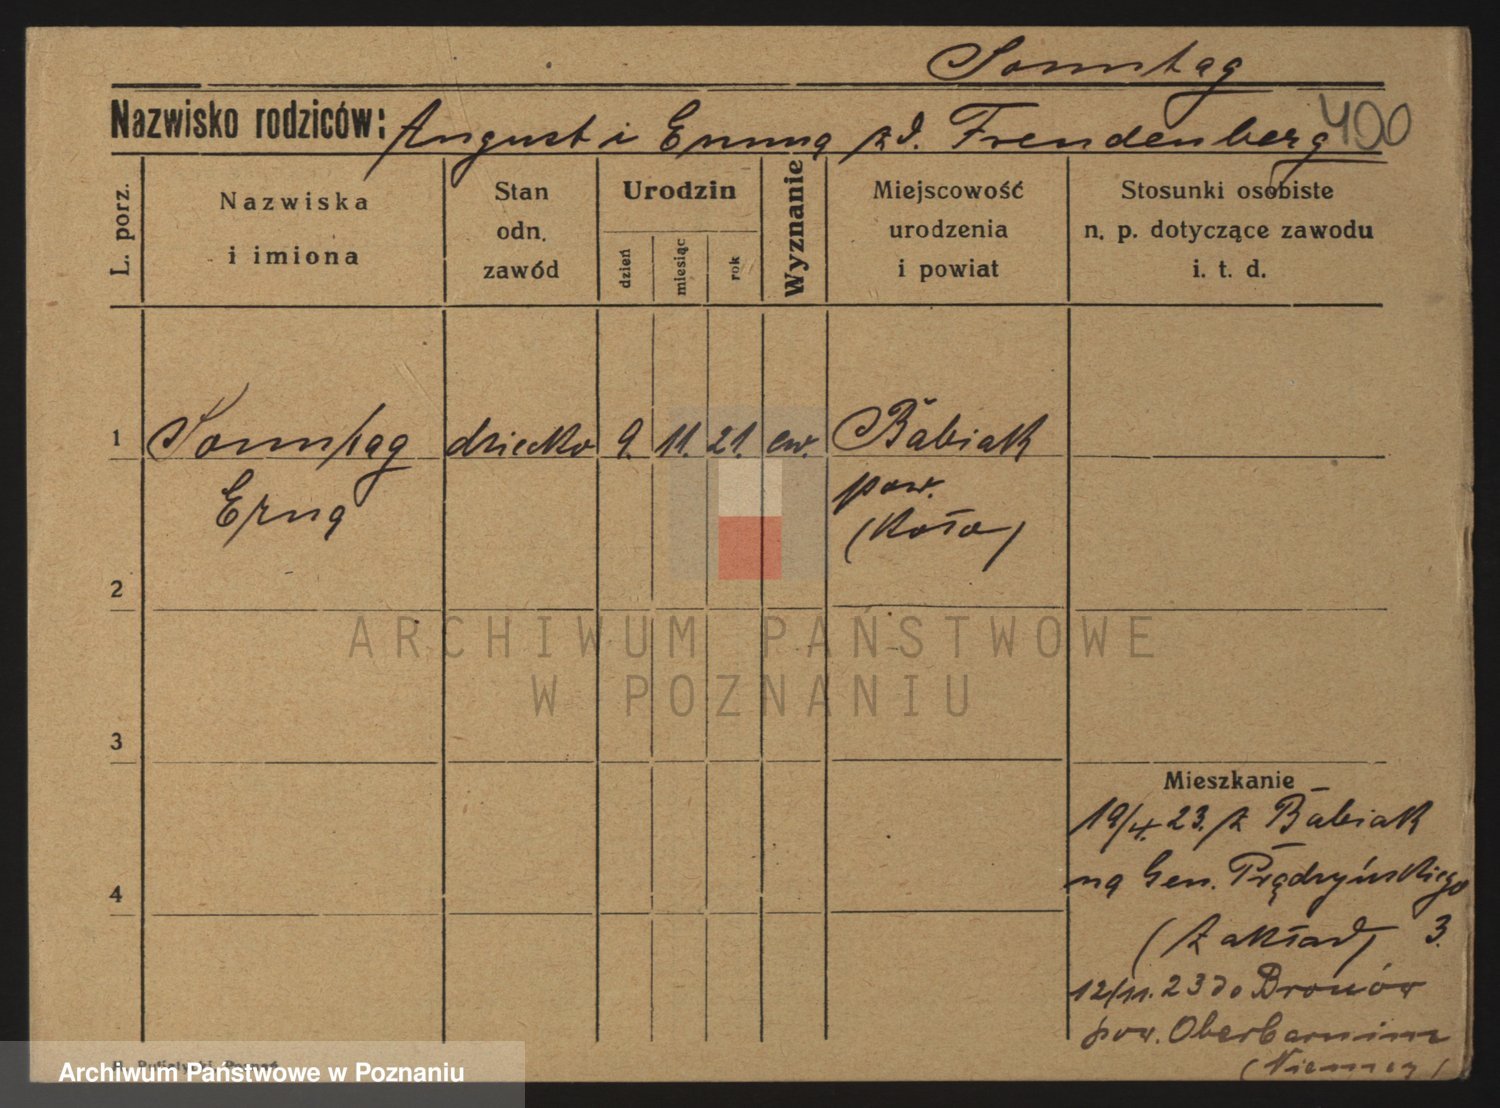 Sonntag
Nazwisko rodziców: August i Emma z d. Freudenberg 400
L. porz.
Nazwiska
i imiona
Stan
odn.
zawód
Urodzin
dzień
miesiąc
rok
Wyznanie
Miejscowość
urodzenia
i powiat
Stosunki osobiste
n. p. dotyczące zawodu
i. t. d.
1 Sonntag dziecko 9. 11. 21. ew. Babiak
Erna pow.
(Koło)
2
ARCHIWUM PAŃSTWOWE
W POZNANIU
3
Mieszkanie
19/4. 23. z Babiak
4 na Gen. Prądzyńskiego
(Zakład) 3.
12/11. 23 do
pow. Oberbarnim
(Niemcy)
Poznań
Archiwum Państwowe w Poznaniu